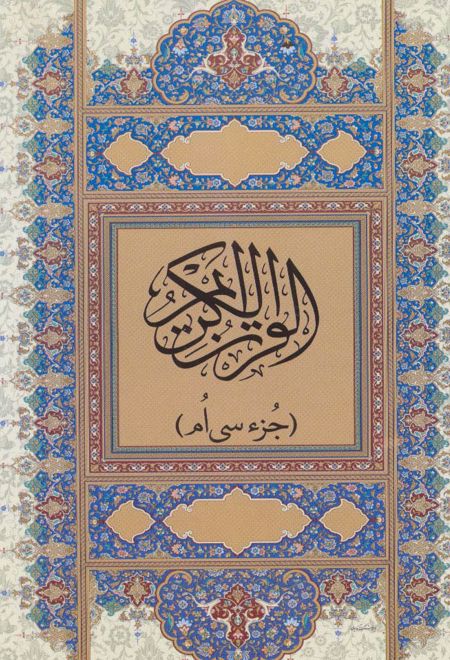 القرآن الكريم
(جُزء سی اُم)